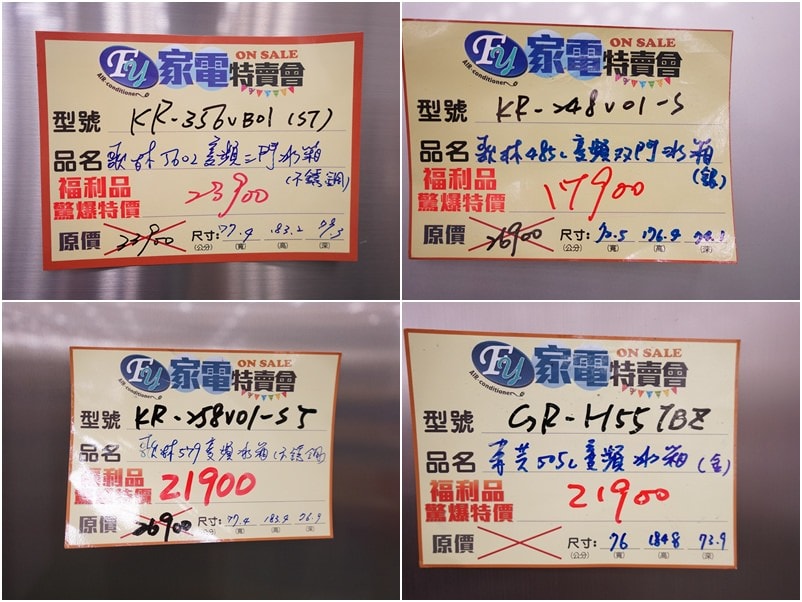 FY 家電特賣會 ON SALE
AIR-conditioner
型號 KR-356VB01(ST)
品名 歌林560L變頻三門冰箱
(不銹鋼)
福利品
驚爆特價 23900
原價 尺寸: 77.4 183.2
(公分) (寬) (高) (深)
FY 家電特賣會 ON SALE
AIR-conditioner
型號 KR-248V01-S
品名 歌林485L變頻双門冰箱
(銀)
福利品
驚爆特價 17900
原價 26900 尺寸: 70.5 176.4
(公分) (寬) (高) (深)
FY 家電特賣會 ON SALE
AIR-conditioner
型號 KR-258V01-ST
品名 歌林579變頻冰箱(不銹鋼)
福利品
驚爆特價 21900
原價 26900 尺寸: 77.4 183.4 76.9
(公分) (寬) (高) (深)
FY 家電特賣會 ON SALE
AIR-conditioner
型號 GR-H55TBZ
品名 東芝505L變頻冰箱(金)
福利品
驚爆特價 21900
原價 尺寸: 76 184.8 73.9
(公分) (寬) (高) (深)